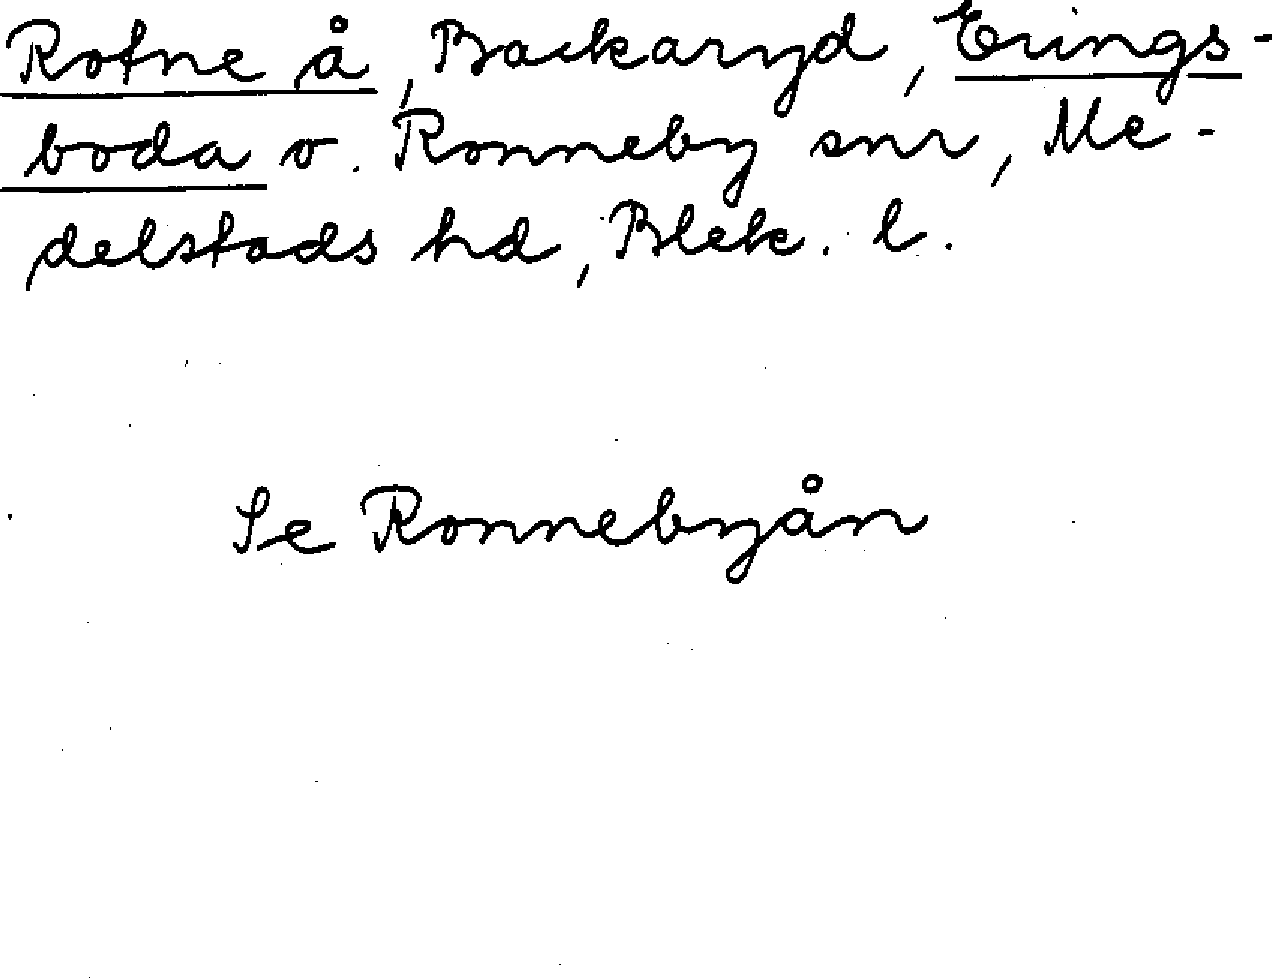 Rotne å, Backaryd, Erings-
boda o. Ronneby snr, Me-
delstads hd, Blek. l.
Se Ronnebyån